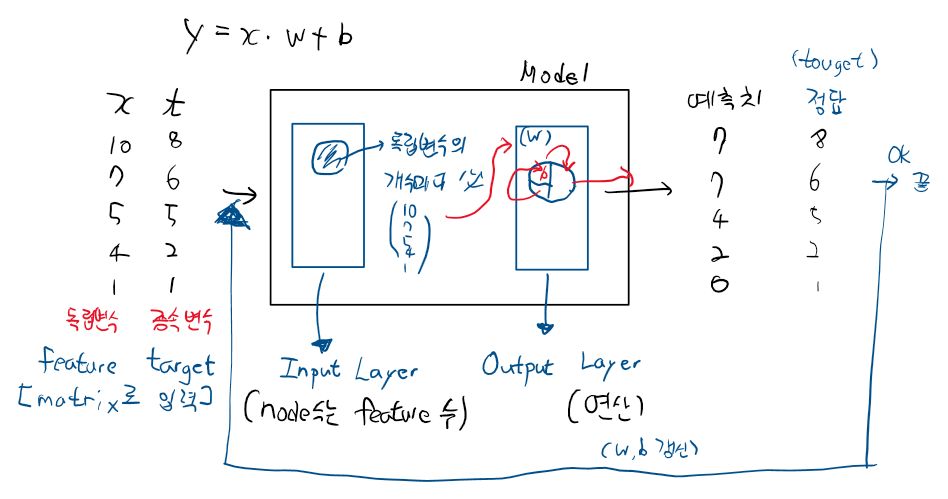 y = x · w + b
Model
x t
10 8
7 6
5 5
4 2
1 1
독립변수 종속변수
feature target
[matrix로 입력]
독립변수의
개수마다
10
7
5
4
1
(w)
b
Input Layer
(node수는 feature 수)
Output Layer
(연산)
(w, b 갱신)
(touget)
예측치 정답
7 8
7 6
4 5
2 2
0 1
Ok
끝